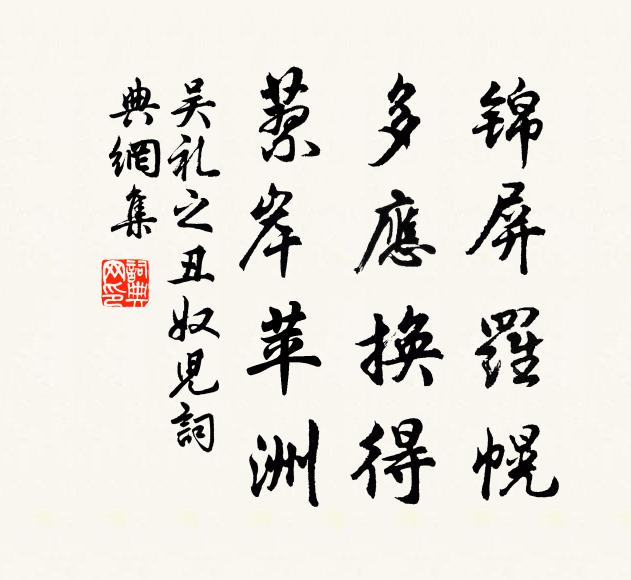 錦屏羅幌
多應換得
蓼岸苹洲
吴礼之丑奴児詞
典網集
詞典網印